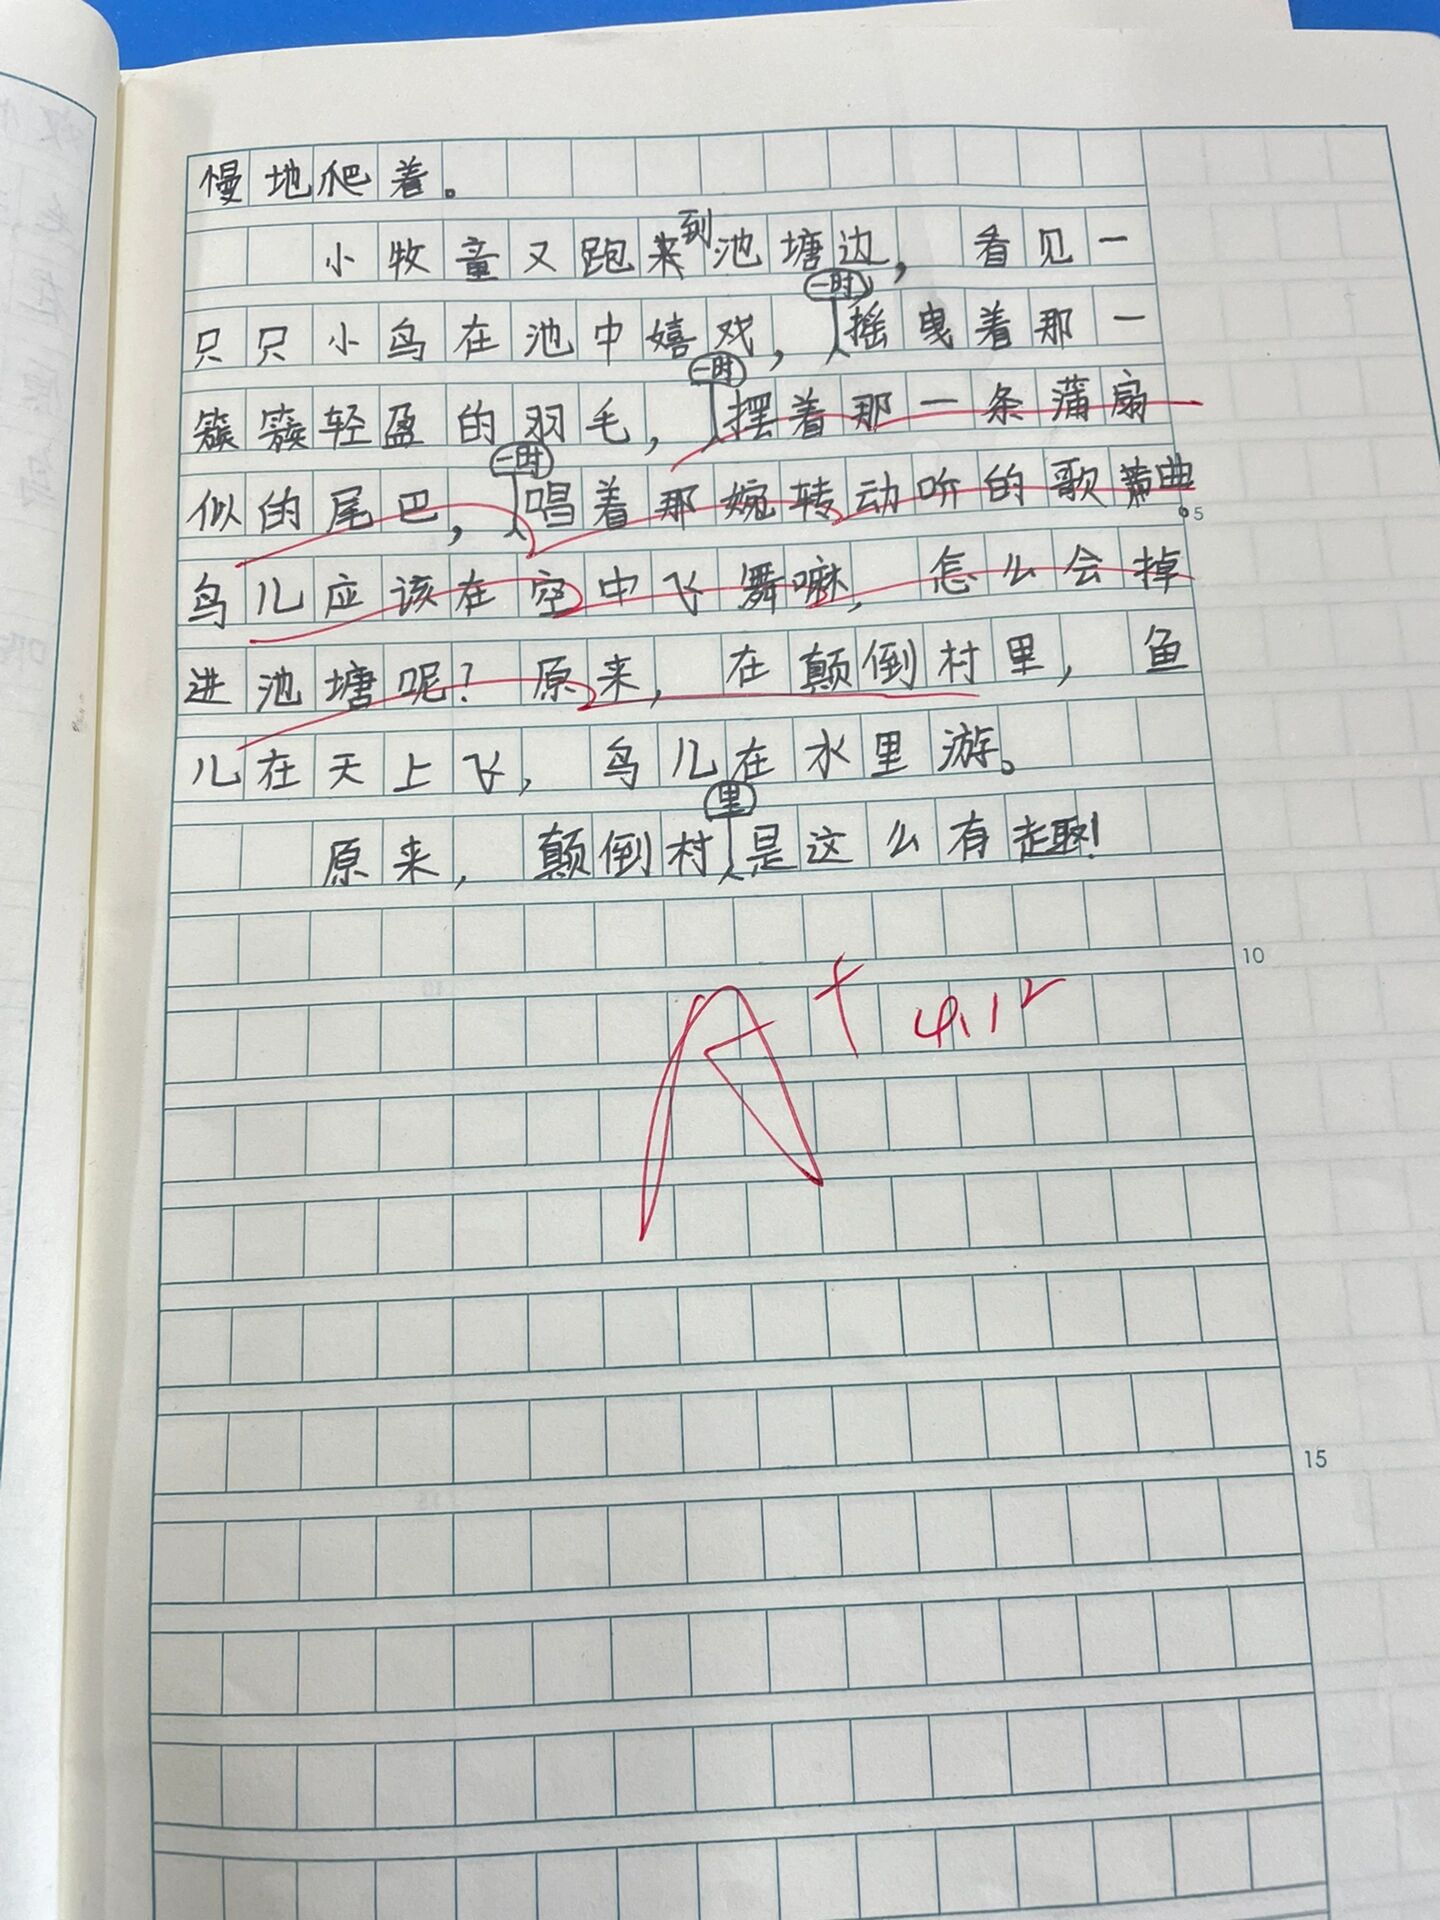 慢地爬着。
小牧童又跑来到池塘边，看见一
只只小鸟在池中嬉戏，一时摇曳着那一
簇簇轻盈的羽毛，一时摆着那一条蒲扇
似的尾巴，一时唱着那婉转动听的歌曲。
5
鸟儿应该在空中飞舞嘛，怎么会掉
进池塘呢？原来，在颠倒村里，鱼
儿在天上飞，鸟儿在水里游。
原来，颠倒村里是这么有趣！
10
A+ 4.12
15